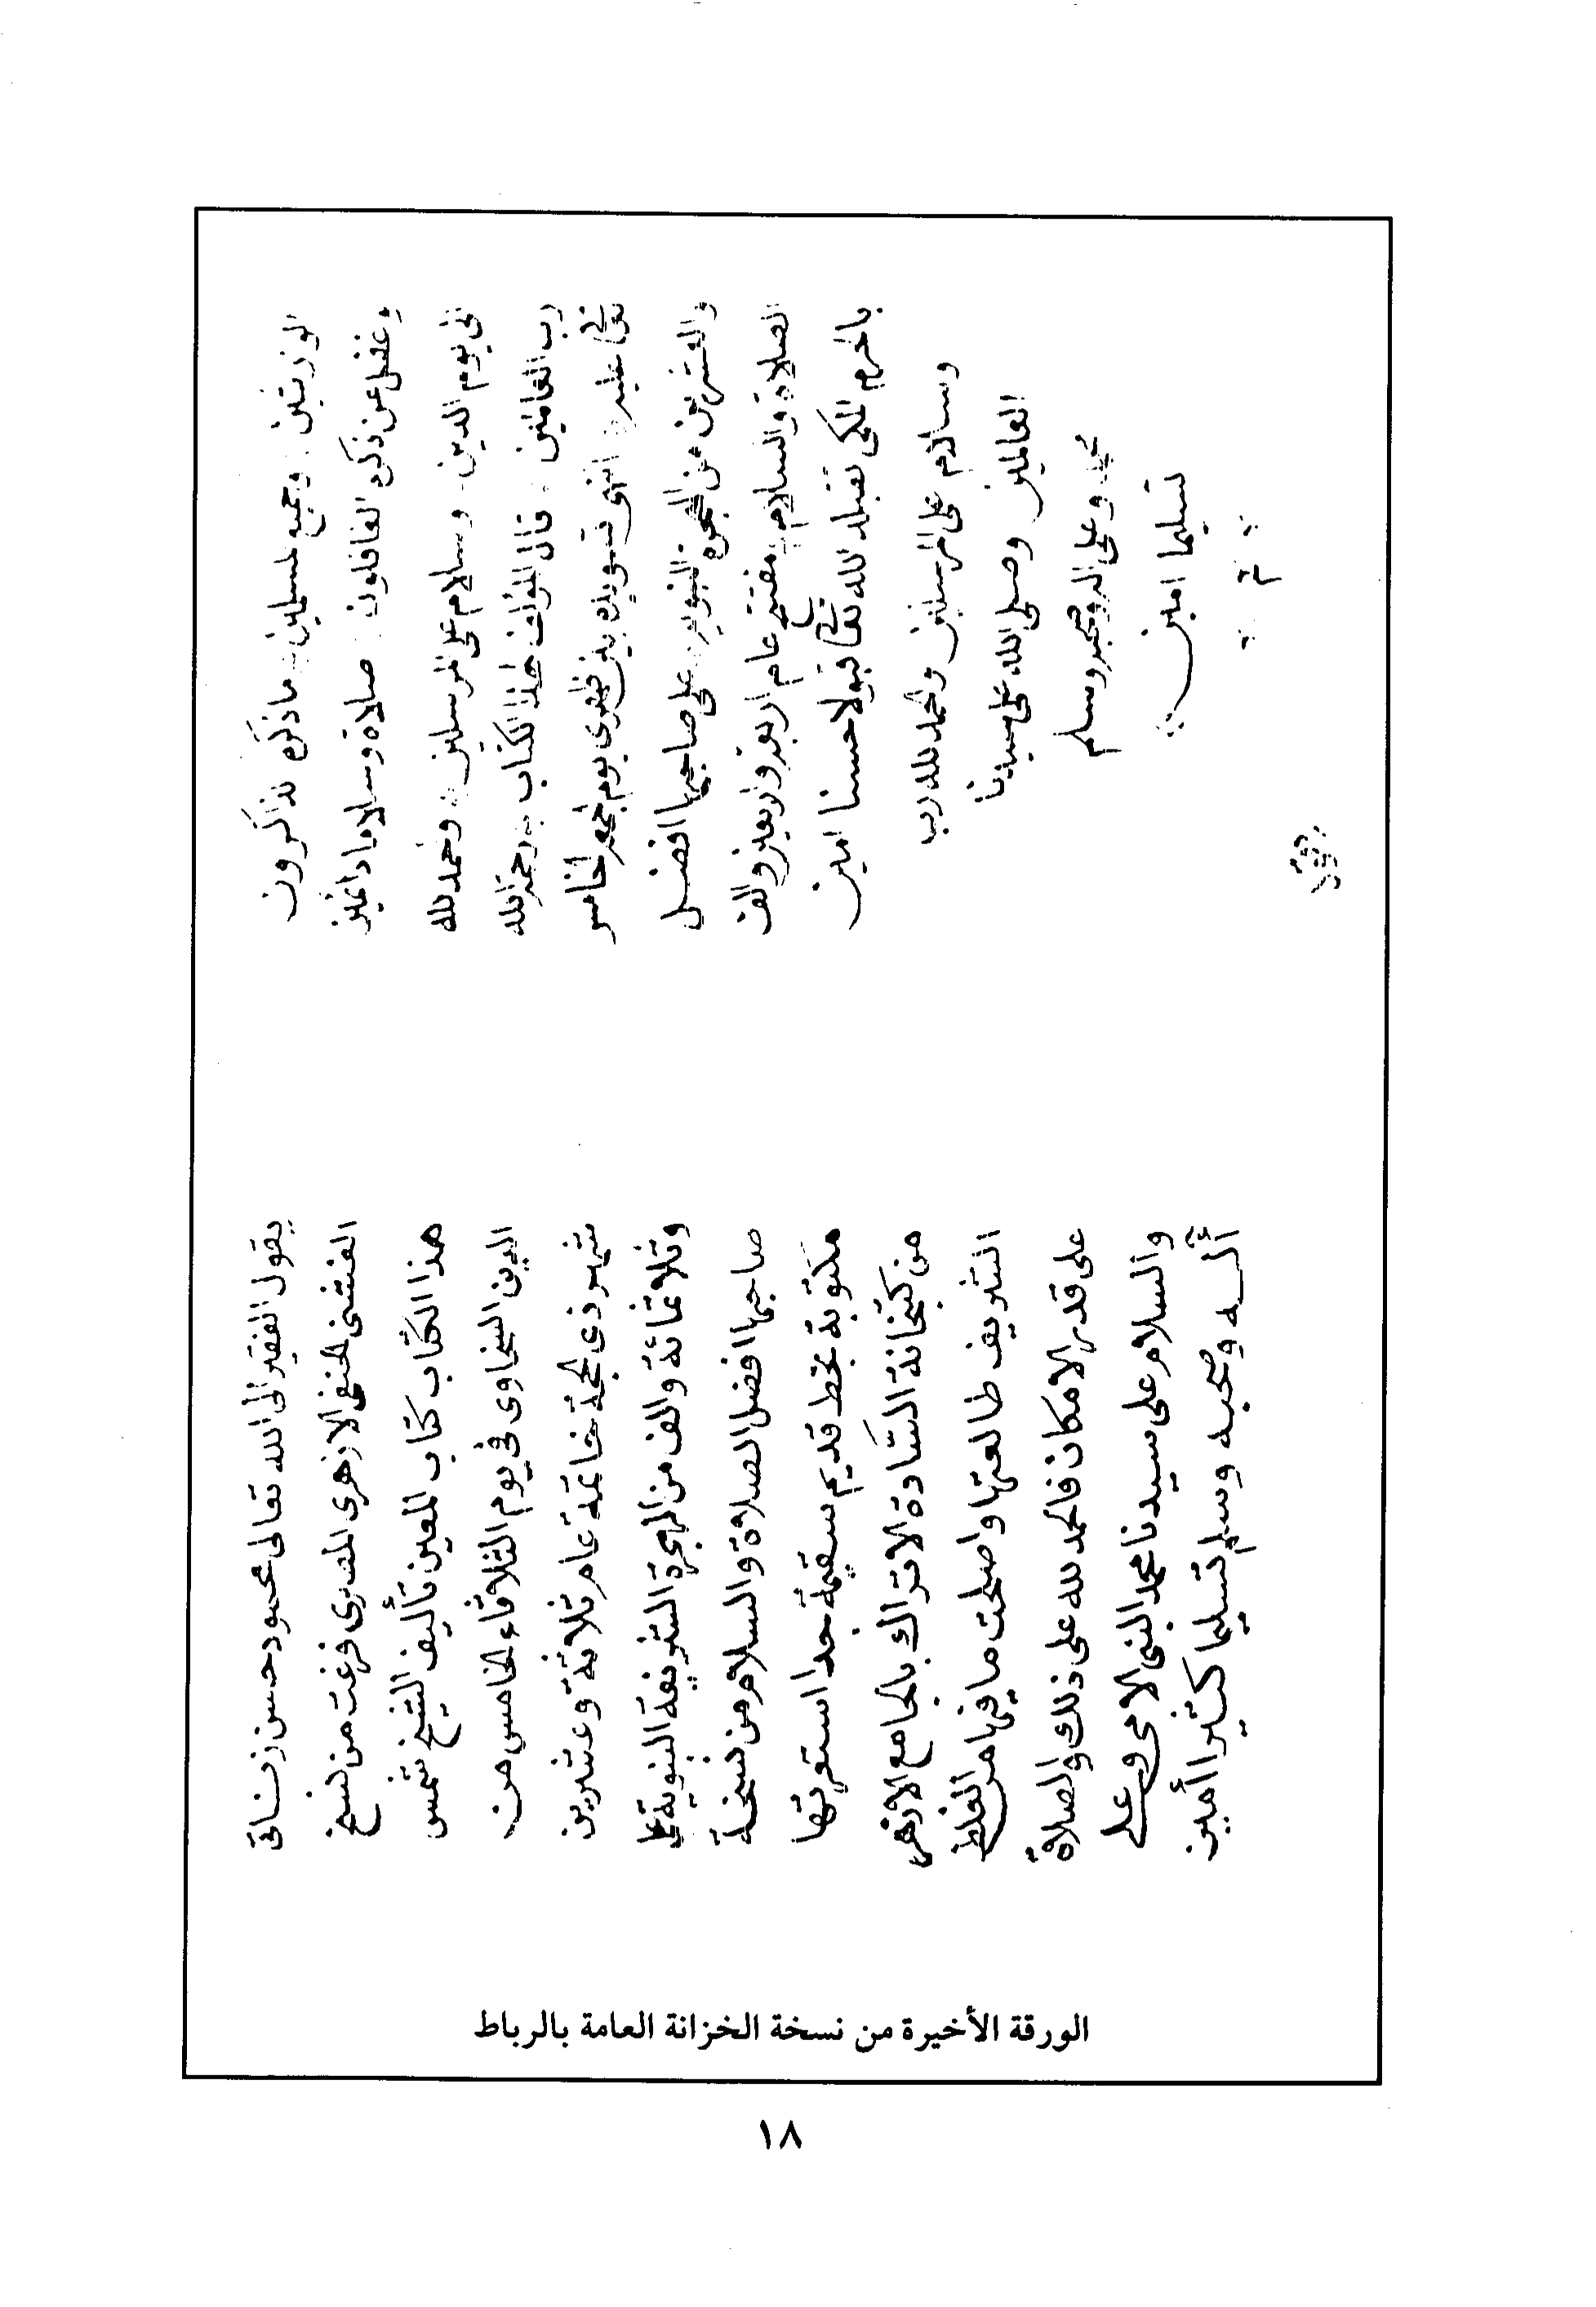 وجميع المسلمين ما ذكره الذاكرون
وغفل عن ذكره الغافلون صلاة وسلاما دائمين
الى يوم الدين وسلام على المرسلين والحمد لله
رب العالمين قال المؤلف لهذا الكتاب رحمة الله
تعالى عليه انتهى تسويده بين ظهرى يوم الجمعة الخامس
والعشرين من الهجرة النبوية على صاحبها افضل
الصلاة والسلام مفتتح عام اربعة واربعين والف
بالحرم المكى تقبله الله تعالى قبولا حسنا امين
وسلام على المرسلين والحمد لله رب
العالمين وصلى الله على سيدنا
محمد وعلى اله وصحبه وسلم
تسليما امين
تم
يقول الفقير الى الله تعالى محمود حسن زناتى
الفشنى الحنفى الازهرى المصرى فرغت من نسخ
هذا الكتاب كتاب المعين تأليف الشيخ شمس
الدين السخاوى فى يوم الثلاثاء الخامس من
شهر ذى الحجة خاتمة عام ثلاثة وعشرين
وثلاثمائة والف من الهجرة الشريفة النبوية على
صاحبها افضل الصلاة والسلام من نسخة
مكتوبة بخط قديم سقيمة جدا استعرتها
من كتبخانة السادة الاتراك بالجامع الازهر
الشريف طالعتها واصلحت ما فيها من الغلط
على قدر الامكان فالحمد لله على ذلك والصلاة
والسلام على سيدنا محمد النبى الامى وعلى
أله وصحبه وسلم تسليما كثيرا أمين
الورقة الأخيرة من نسخة الخزانة العامة بالرباط
١٨